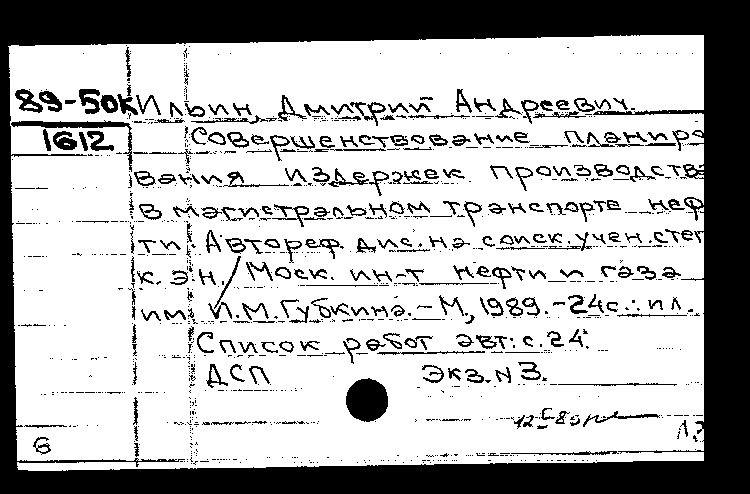 89-50К Ильин, Дмитрий Андреевич.
1612 Совершенствование планиро
вания издержек производства
в магистральном транспорте неф
ти: Автореф. дис. на соиск. учен. степ
к. э. н. / Моск. ин-т нефти и газа
им И.М. Губкина. - М, 1989. - 24с.: ил.
Список работ авт: с. 24.
ДСП Экз. N 3.